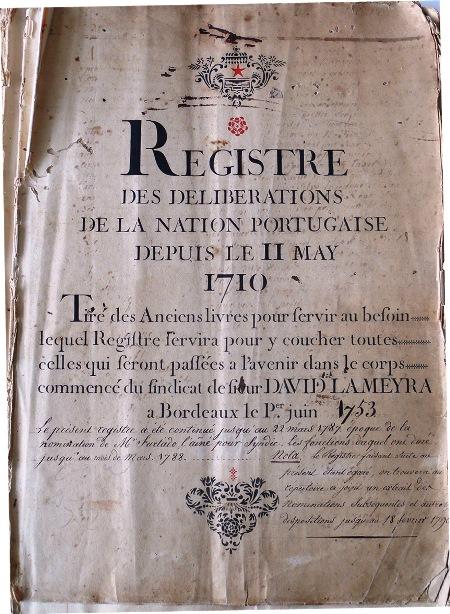 REGISTRE
DES DELIBERATIONS
DE LA NATION PORTUGAISE
DEPUIS LE II MAY
1710
Tiré des Anciens livres pour servir au besoin
lequel Registre servira pour y coucher toutes
celles qui seront passées a l'avenir dans le corps
commencé du sindicat de sieur DAVID LAMEYRA
a Bordeaux le Per. juin 1753
Le présent registre a été continué jusqu'au 22 mars 1787 époque de la
nomination de Mr. furtado l'ainé pour Syndic, les fonctions duquel ont duré
jusqu'au mois de Mars 1788. Nota, le Registre faisant suite au
présent étant égaré, on trouvera au
répertoire cy joint un extrait des
nominations subséquentes et autres
dispositions jusqu'au 18 fevrier 1790